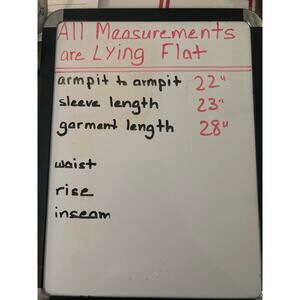 All Measurements
are Lying Flat
armpit to armpit 22"
sleeve length 23"
garment length 28"
waist
rise
inseam